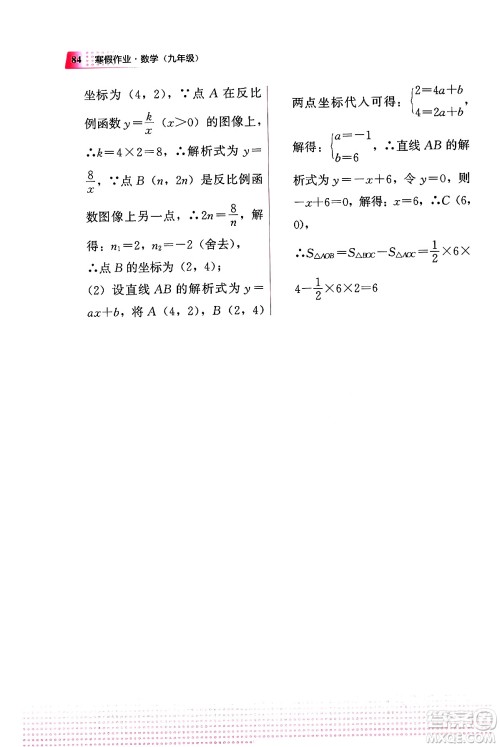 84 寒假作业·数学（九年级）
坐标为（4，2），∵点 A 在反比
例函数 y=k/x（x＞0）的图像上，
∴k=4×2=8，∴解析式为 y=
8/x，∵点 B（n，2n）是反比例函
数图像上另一点，∴2n=8/n，解
得：n₁=2，n₂=－2（舍去），
∴点 B 的坐标为（2，4）；
（2）设直线 AB 的解析式为 y=
ax＋b，将 A（4，2），B（2，4）
两点坐标代人可得：{2=4a＋b
4=2a＋b
解得：{a=－1
b=6，∴直线 AB 的解
析式为 y=－x＋6，令 y=0，则
－x＋6=0，解得：x=6，∴C（6，
0），
∴S△AOB=S△BOC－S△AOC=1/2×6×
4－1/2×6×2=6